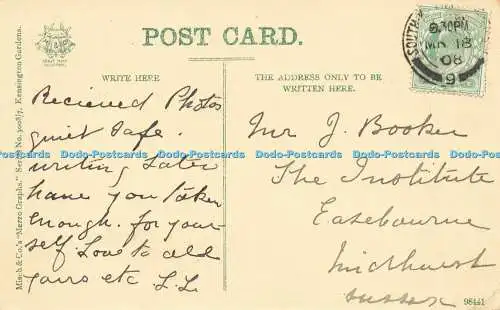 POST CARD.
WRITE HERE
THE ADDRESS ONLY TO BE
WRITTEN HERE.
Misch & Co.'s "Merro Graphs." Series No. 308/7. Kensington Gardens.
Recieved Photos
quiet safe.
writing later
have you taken
enough. for your-
self Love to all
yours etc L.L.
Mr J. Booker
The Institute
Easebourne
Midhurst
Sussex
SOUTH
6.30PM
MR 18
08
9
98441
Dodo-Postcards Dodo-Postcards Dodo-Postcards Dodo-Postcards Dodo-Postcards Dodo-Postcards